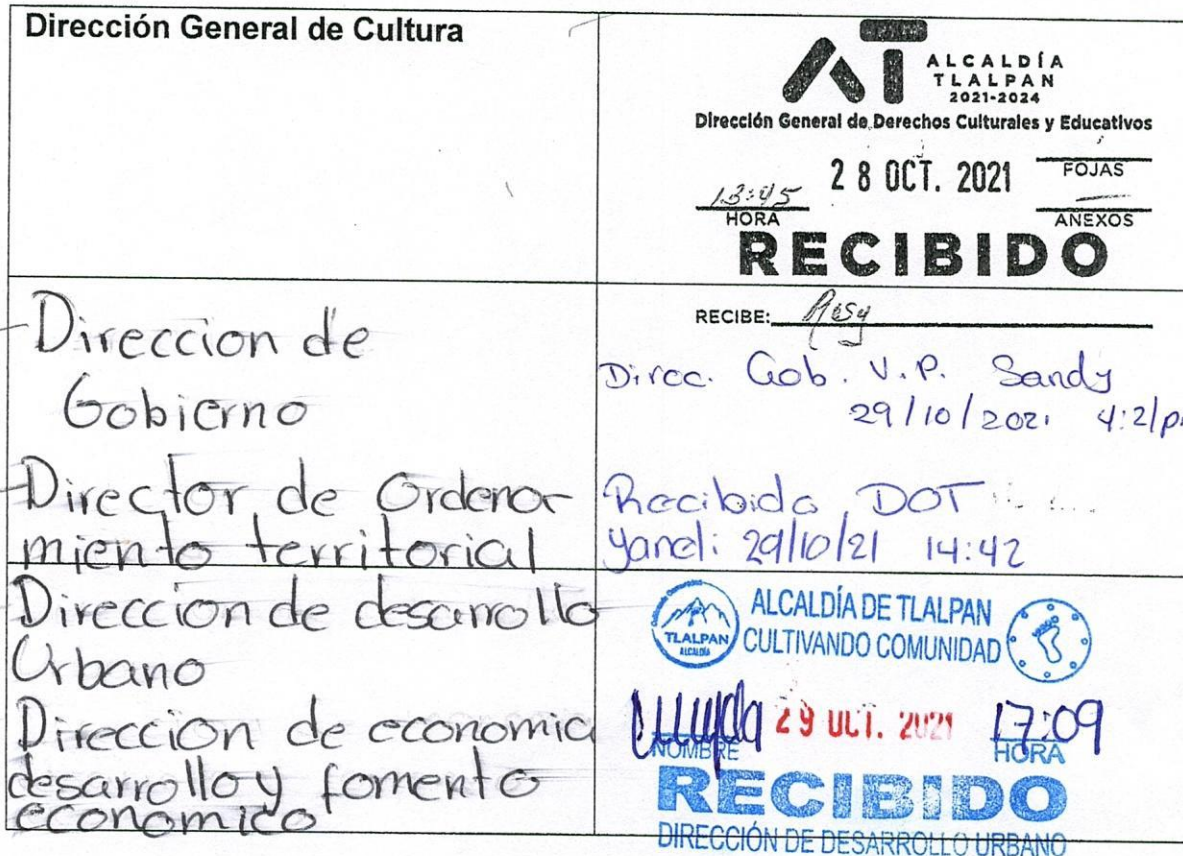 Dirección General de Cultura
AT ALCALDÍA
TLALPAN
2021-2024
Dirección General de Derechos Culturales y Educativos
28 OCT. 2021
FOJAS
13:45
HORA
ANEXOS
RECIBIDO
RECIBE: Rosy
Direccion de
Gobierno
Direc. Gob. V.P. Sandy
29/10/2021 4:21p
Director de Ordena
miento territorial
Recibido DOT
Yaneli 29/10/21 14:42
Direccion de desarrollo
Urbano
Direccion de economic
desarrollo y fomento
economico
TLALPAN
ALCALDÍA
ALCALDÍA DE TLALPAN
CULTIVANDO COMUNIDAD
29 OCT. 2021
17:09
NOMBRE
HORA
RECIBIDO
DIRECCIÓN DE DESARROLLO URBANO